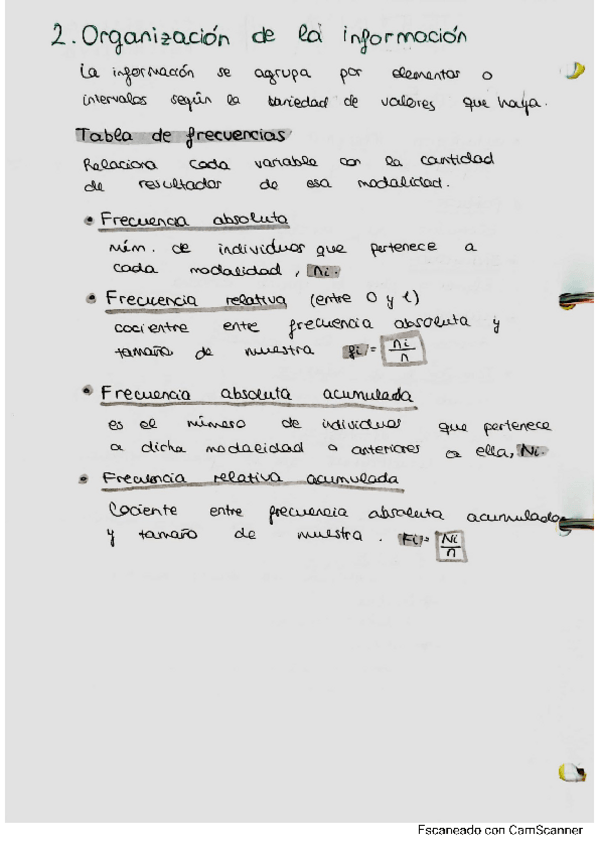 2. Organización de la información
La información se agrupa por elementos o
intervalos según la variedad de valores que haya.
Tabla de frecuencias
Relaciona cada variable con la cantidad
de resultados de esa modalidad.
• Frecuencia absoluta
núm. de individuos que pertenece a
cada modalidad, ni.
• Frecuencia relativa (entre 0 y 1)
cocientre entre frecuencia absoluta y
tamaño de muestra fi = ni/n
• Frecuencia absoluta acumulada
es el número de individuos que pertenece
a dicha modalidad o anteriores a ella, Ni.
• Frecuencia relativa acumulada
Cociente entre frecuencia absoluta acumulada
y tamaño de muestra. Fi = Ni/n
Escaneado con CamScanner